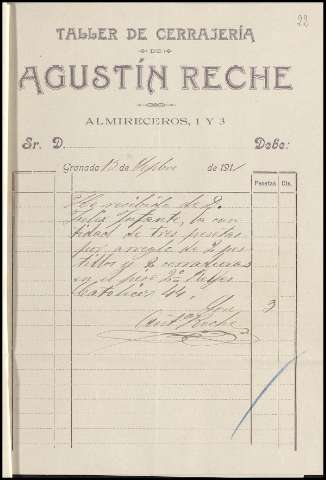 22
TALLER DE CERRAJERÍA
DE
AGUSTÍN RECHE
ALMIRECEROS, 1 Y 3
Sr. D. Debe:
Granada 13 de de 191
Pesetas Cts.
He recibido de D.
Felix Infante, la can
tidad de tres pesetas
por arreglo de 2 pes
tillos y 2 cerraduras
en el piso 2º Reyes
Católicos 44.
Son 3
Reche